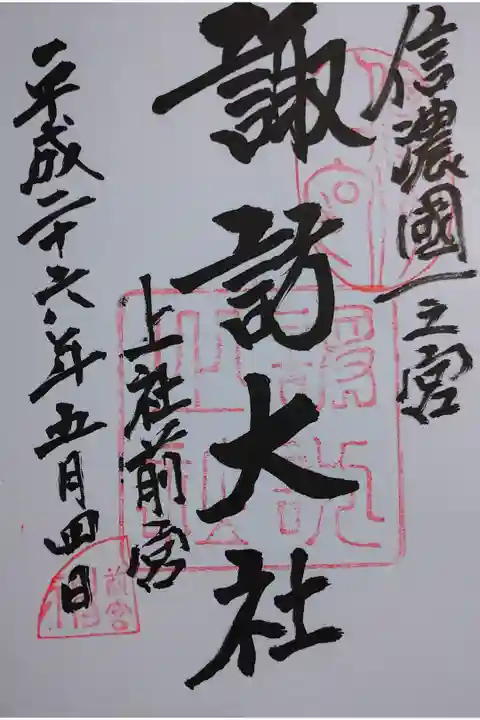 信濃國一之宮
諏訪大社
上社前宮
平成二十六年五月四日
前宮